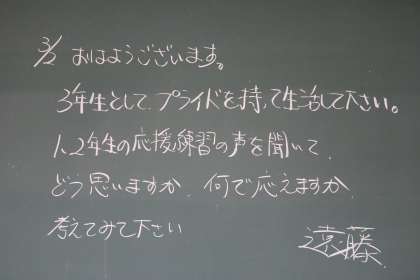 3/2 おはようございます。
3年生として、プライドを持って生活して下さい。
1、2年生の応援練習の声を聞いて、
どう思いますか、何で応えますか、
考えてみて下さい
遠藤